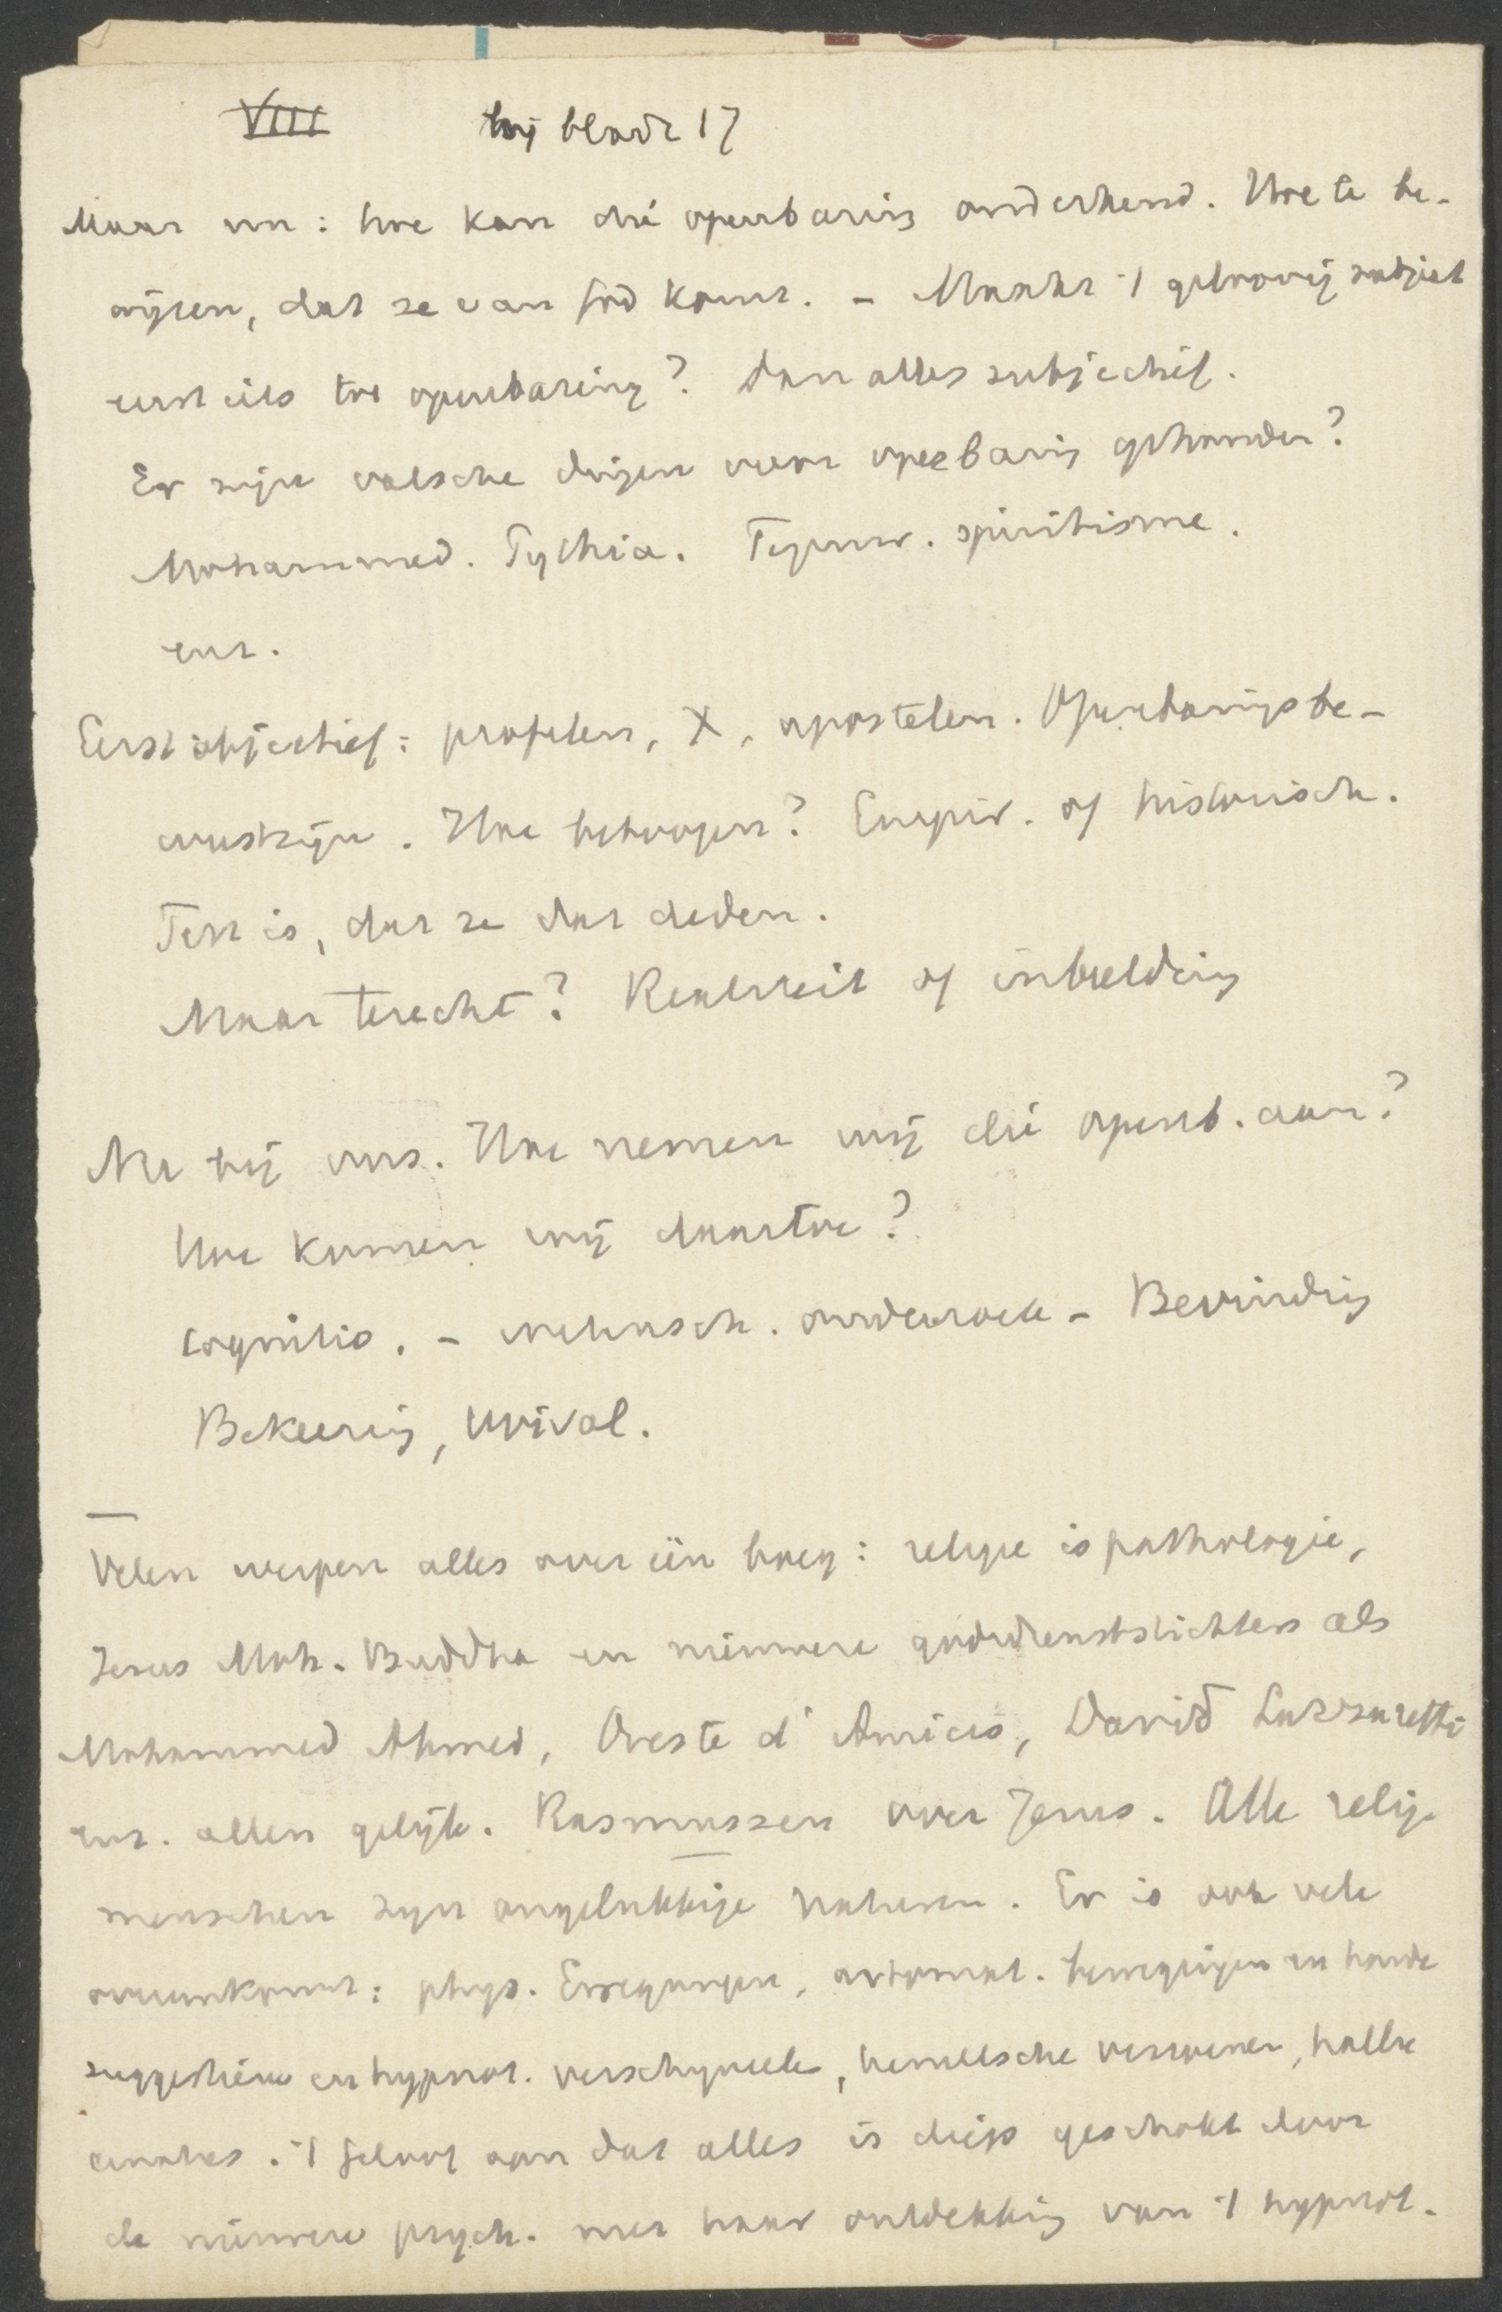 VIII bij bladz 17
Maar nu: hoe kan die openbaring onderkend. Hoe te be-
wijzen, dat ze van God komt. - Maakt 't geloovig subject
eerst iets tot openbaring? Dan alles subjectief.
Er zijn valsche dingen voor openbaring gehouden?
Mohammed. Pythia. spiritisme.
enz.
Eerst objectief: profeten, X, apostelen. Openbaringsbe-
wustzijn. Hoe betoogen? Empir. of historisch.
Feit is, dat ze dat deden.
Maar terecht? Realiteit of inbeelding
Nu bij ons. Hoe nemen wij die openb. aan?
Hoe komen wij daartoe?
Cognitio. - wetensch. onderzoek - Bevinding
Bekeering, revival.
Velen werpen alles over één boeg: religie is pathologie,
Jezus Moh. Buddha en nieuwere godsdienststichters als
Mohammed Ahmed, Oreste d' Amicis, David Lazzaretti
enz. allen gelijk. Rasmussen over Jezus. Alle relig.
menschen zijn ongelukkige naturen. Er is ook vele
overeenkomst: phys. Erregungen, automat. bewegingen en
suggestieve en hypnot. verschijnselen, hemelsche visioenen, hallu
cinaties. 't geloof aan dat alles is diep geschokt door
de nieuwere psych. met haar ontdekking van 't hypnot.